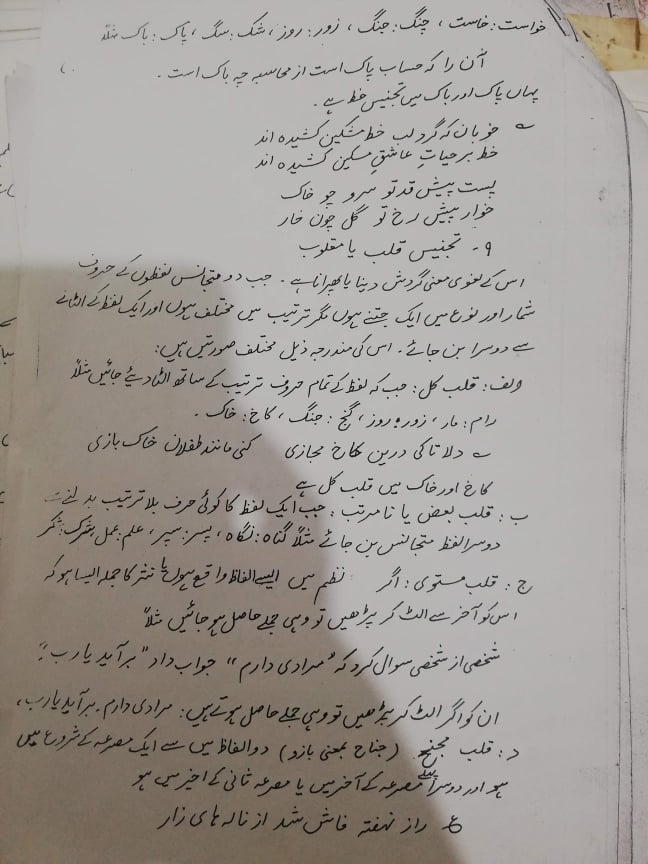 خواست: خاست ، چنگ: جنگ ، زور: روز ، شک: سگ ، پاک: باک مثلاً
آن را که حساب پاک است از محاسبہ چہ باک است ۔
یہاں پاک اور باک میں تجنیس خط ہے ۔
خوبان کہ گرد لب خط مشکین کشیدہ اند
خط بر حیاتِ عاشقِ مسکین کشیدہ اند
پست پیش قد تو سرو چو خاک
خوار پیش رخ تو گل چون خار
۹۔ تجنیس قلب یا مقلوب
اس کے لغوی معنی گردش دینا یا پھیرانا ہے ۔ جب دو متجانس لفظوں کے حروف
شمار اور نوع میں ایک جتنے ہوں مگر ترتیب میں مختلف ہوں اور ایک لفظ کے الٹانے
سے دوسرا بن جائے ۔ اس کی مندرجہ ذیل مختلف صورتیں ہیں:
الف: قلب کل: جب کہ لفظ کے تمام حروف ترتیب کے ساتھ الٹا دیئے جائیں مثلاً
رام: مار ، زور و روز ، گنج: جنگ ، کاخ: خاک ۔
دلا تا کی درین کاخ مجازی کنی مانند طفلان خاک بازی
کاخ اور خاک میں قلب کل ہے
ب: قلب بعض یا نا مرتب: جب ایک لفظ کا کوئی حرف بلا ترتیب بدلنے سے
دوسرا لفظ متجانس بن جائے مثلاً گناہ: نگاہ ، پسر: سپر ، علم: عمل
ج: قلب مستوی: اگر نظم میں ایسے الفاظ واقع ہوں یا نثر کا جملہ ایسا ہو کہ
اس کو آخر سے الٹ کر پڑھیں تو وہی جملے حاصل ہو جائیں مثلاً
شخصی از شخصی سوال کرد کہ "مرادی دارم" جواب داد "برآید یا رب"
ان کو اگر الٹ کر پڑھیں تو وہی جملے حاصل ہوتے ہیں: مرادی دارم۔ برآید یا رب،
د: قلب مجنح (جناح بمعنی بازو) دو الفاظ میں سے ایک مصرعہ کے شروع میں
ہو اور دوسرا پہلے مصرعہ کے آخر میں یا مصرعہ ثانی کے اخیر میں ہو
ع راز نہفتہ فاش شد از نالہ ہای زار